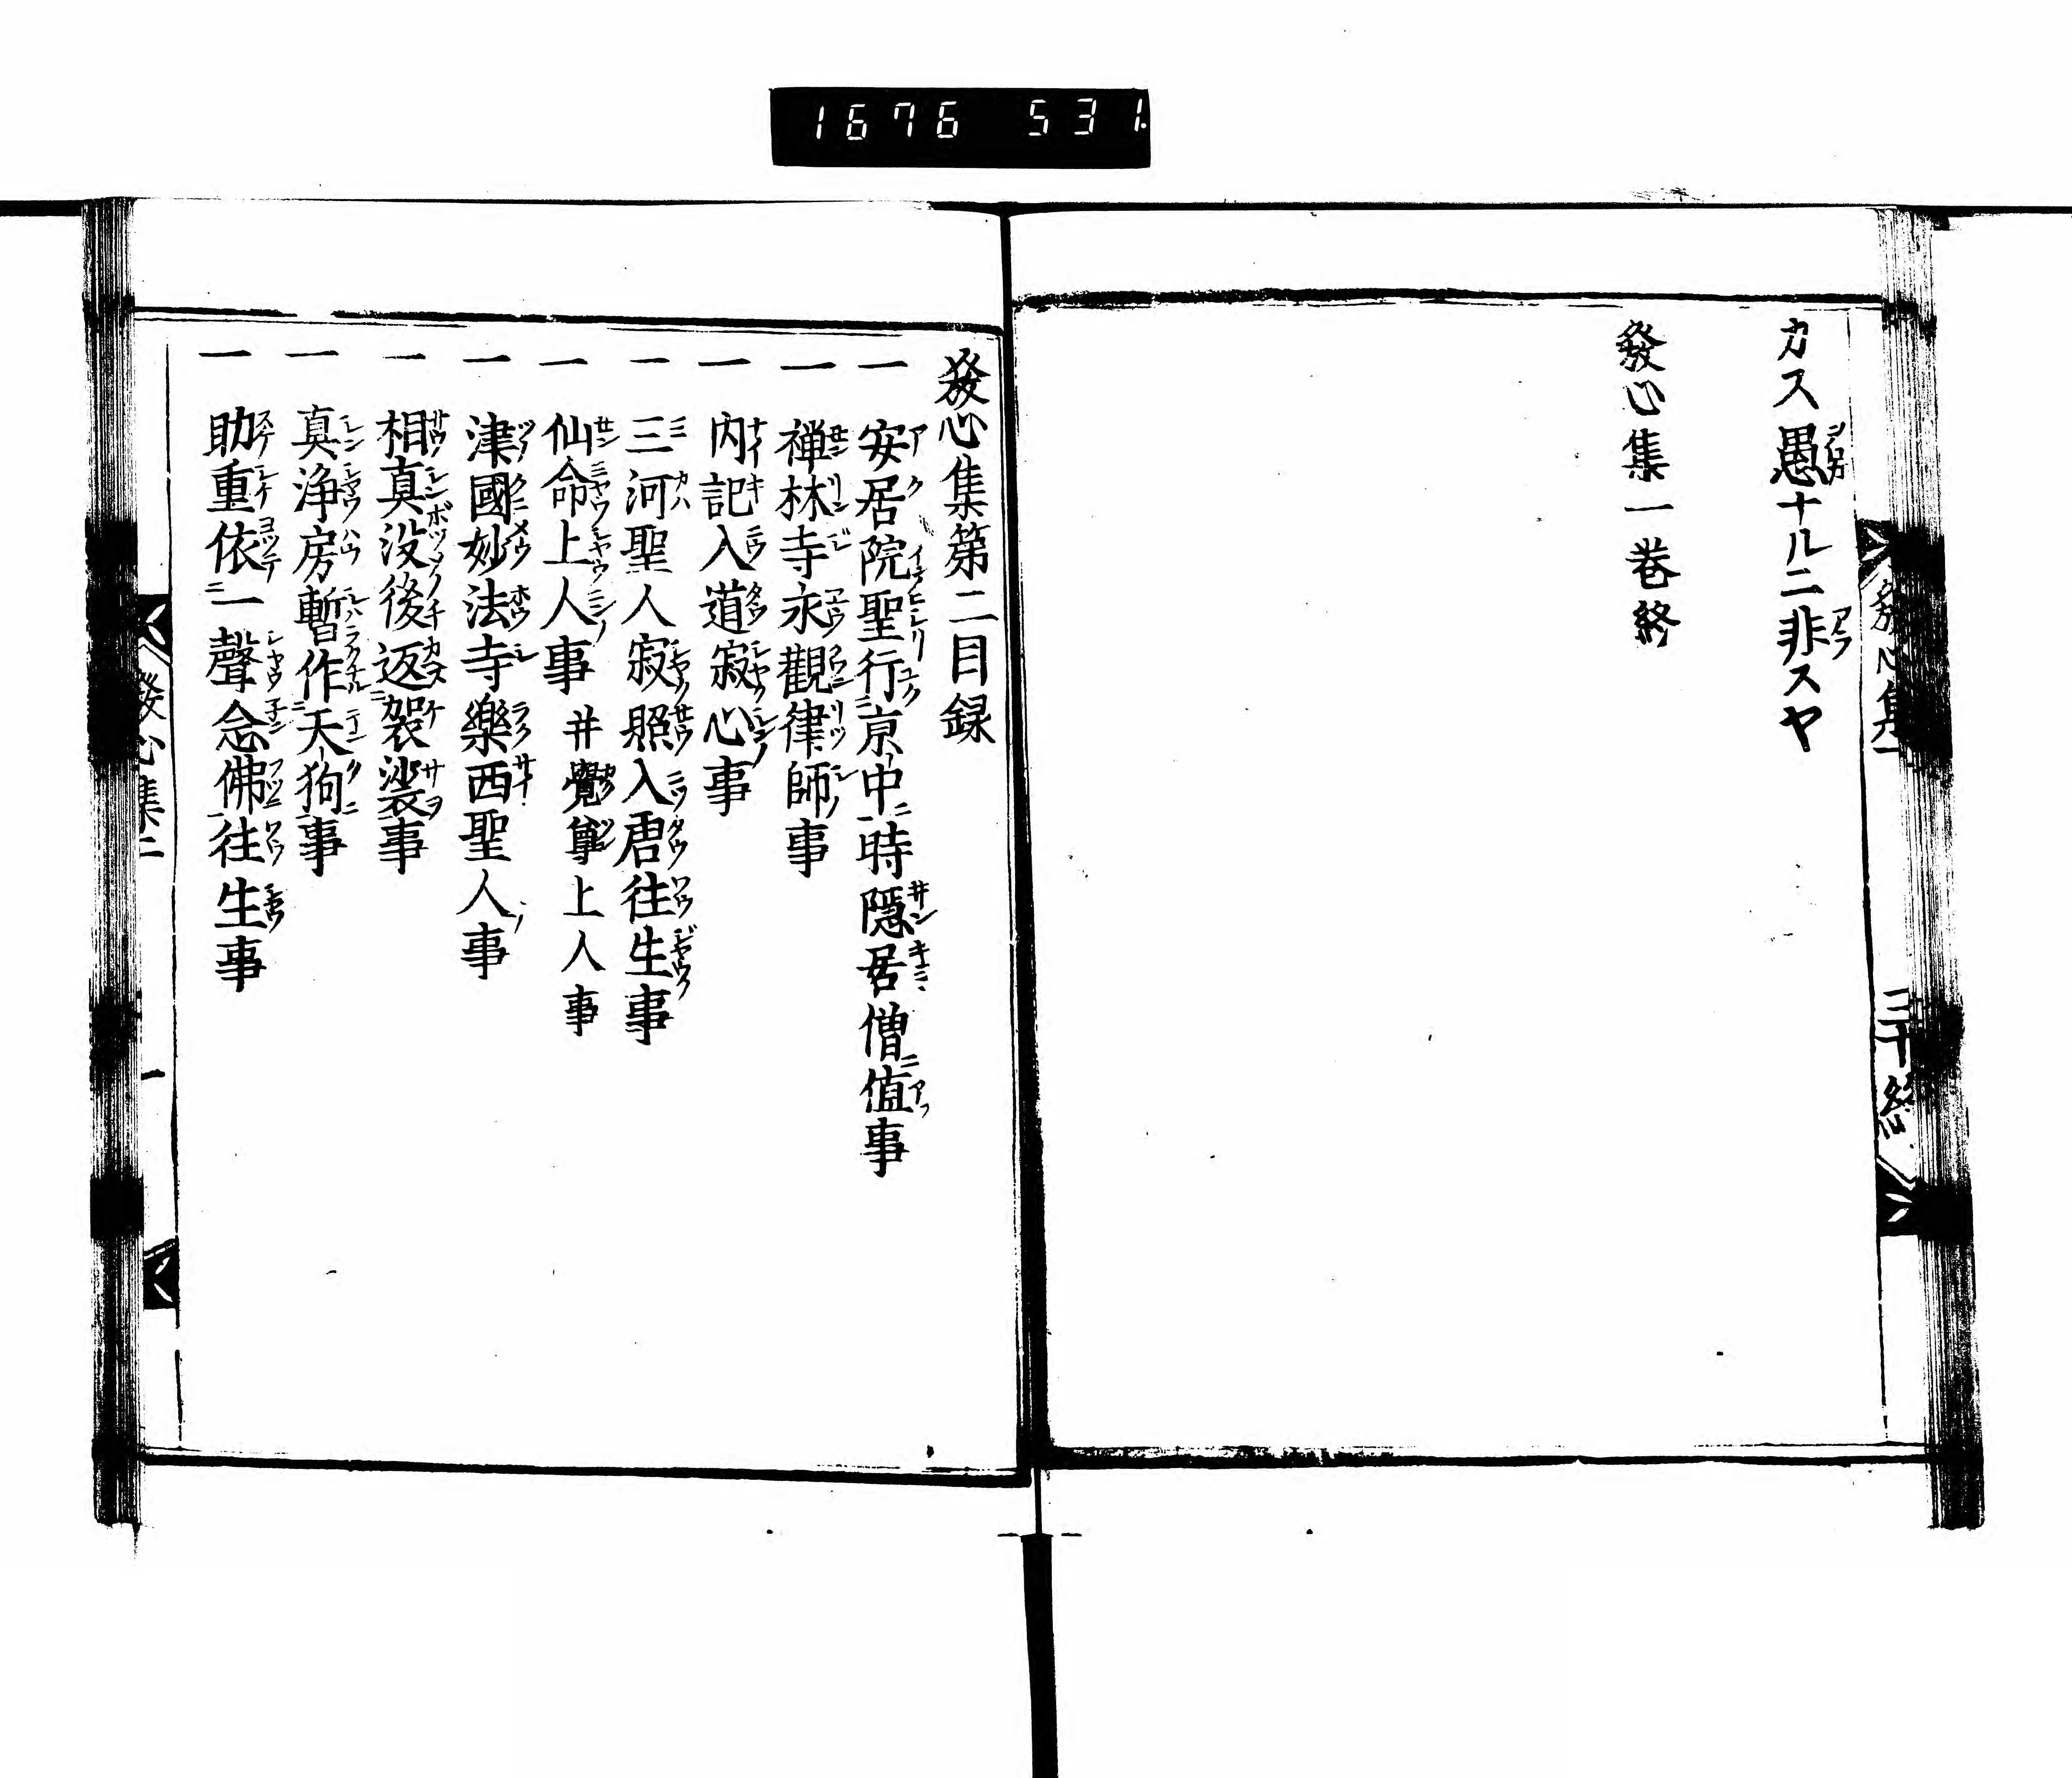 1676 531
カス愚ナルニ非スヤ
發心集一巻終
發心集第二目録
一 安居院聖行京中時隱居僧値事
一 禅林寺永觀律師事
一 内記入道寂心事
一 三河聖人寂照入唐往生事
一 仙命上人事 并覺尊上人事
一 津國妙法寺樂西聖人事
一 相真没後返袈裟事
一 真浄房暫作天狗事
一 助重依一聲念佛往生事
發心集二 一